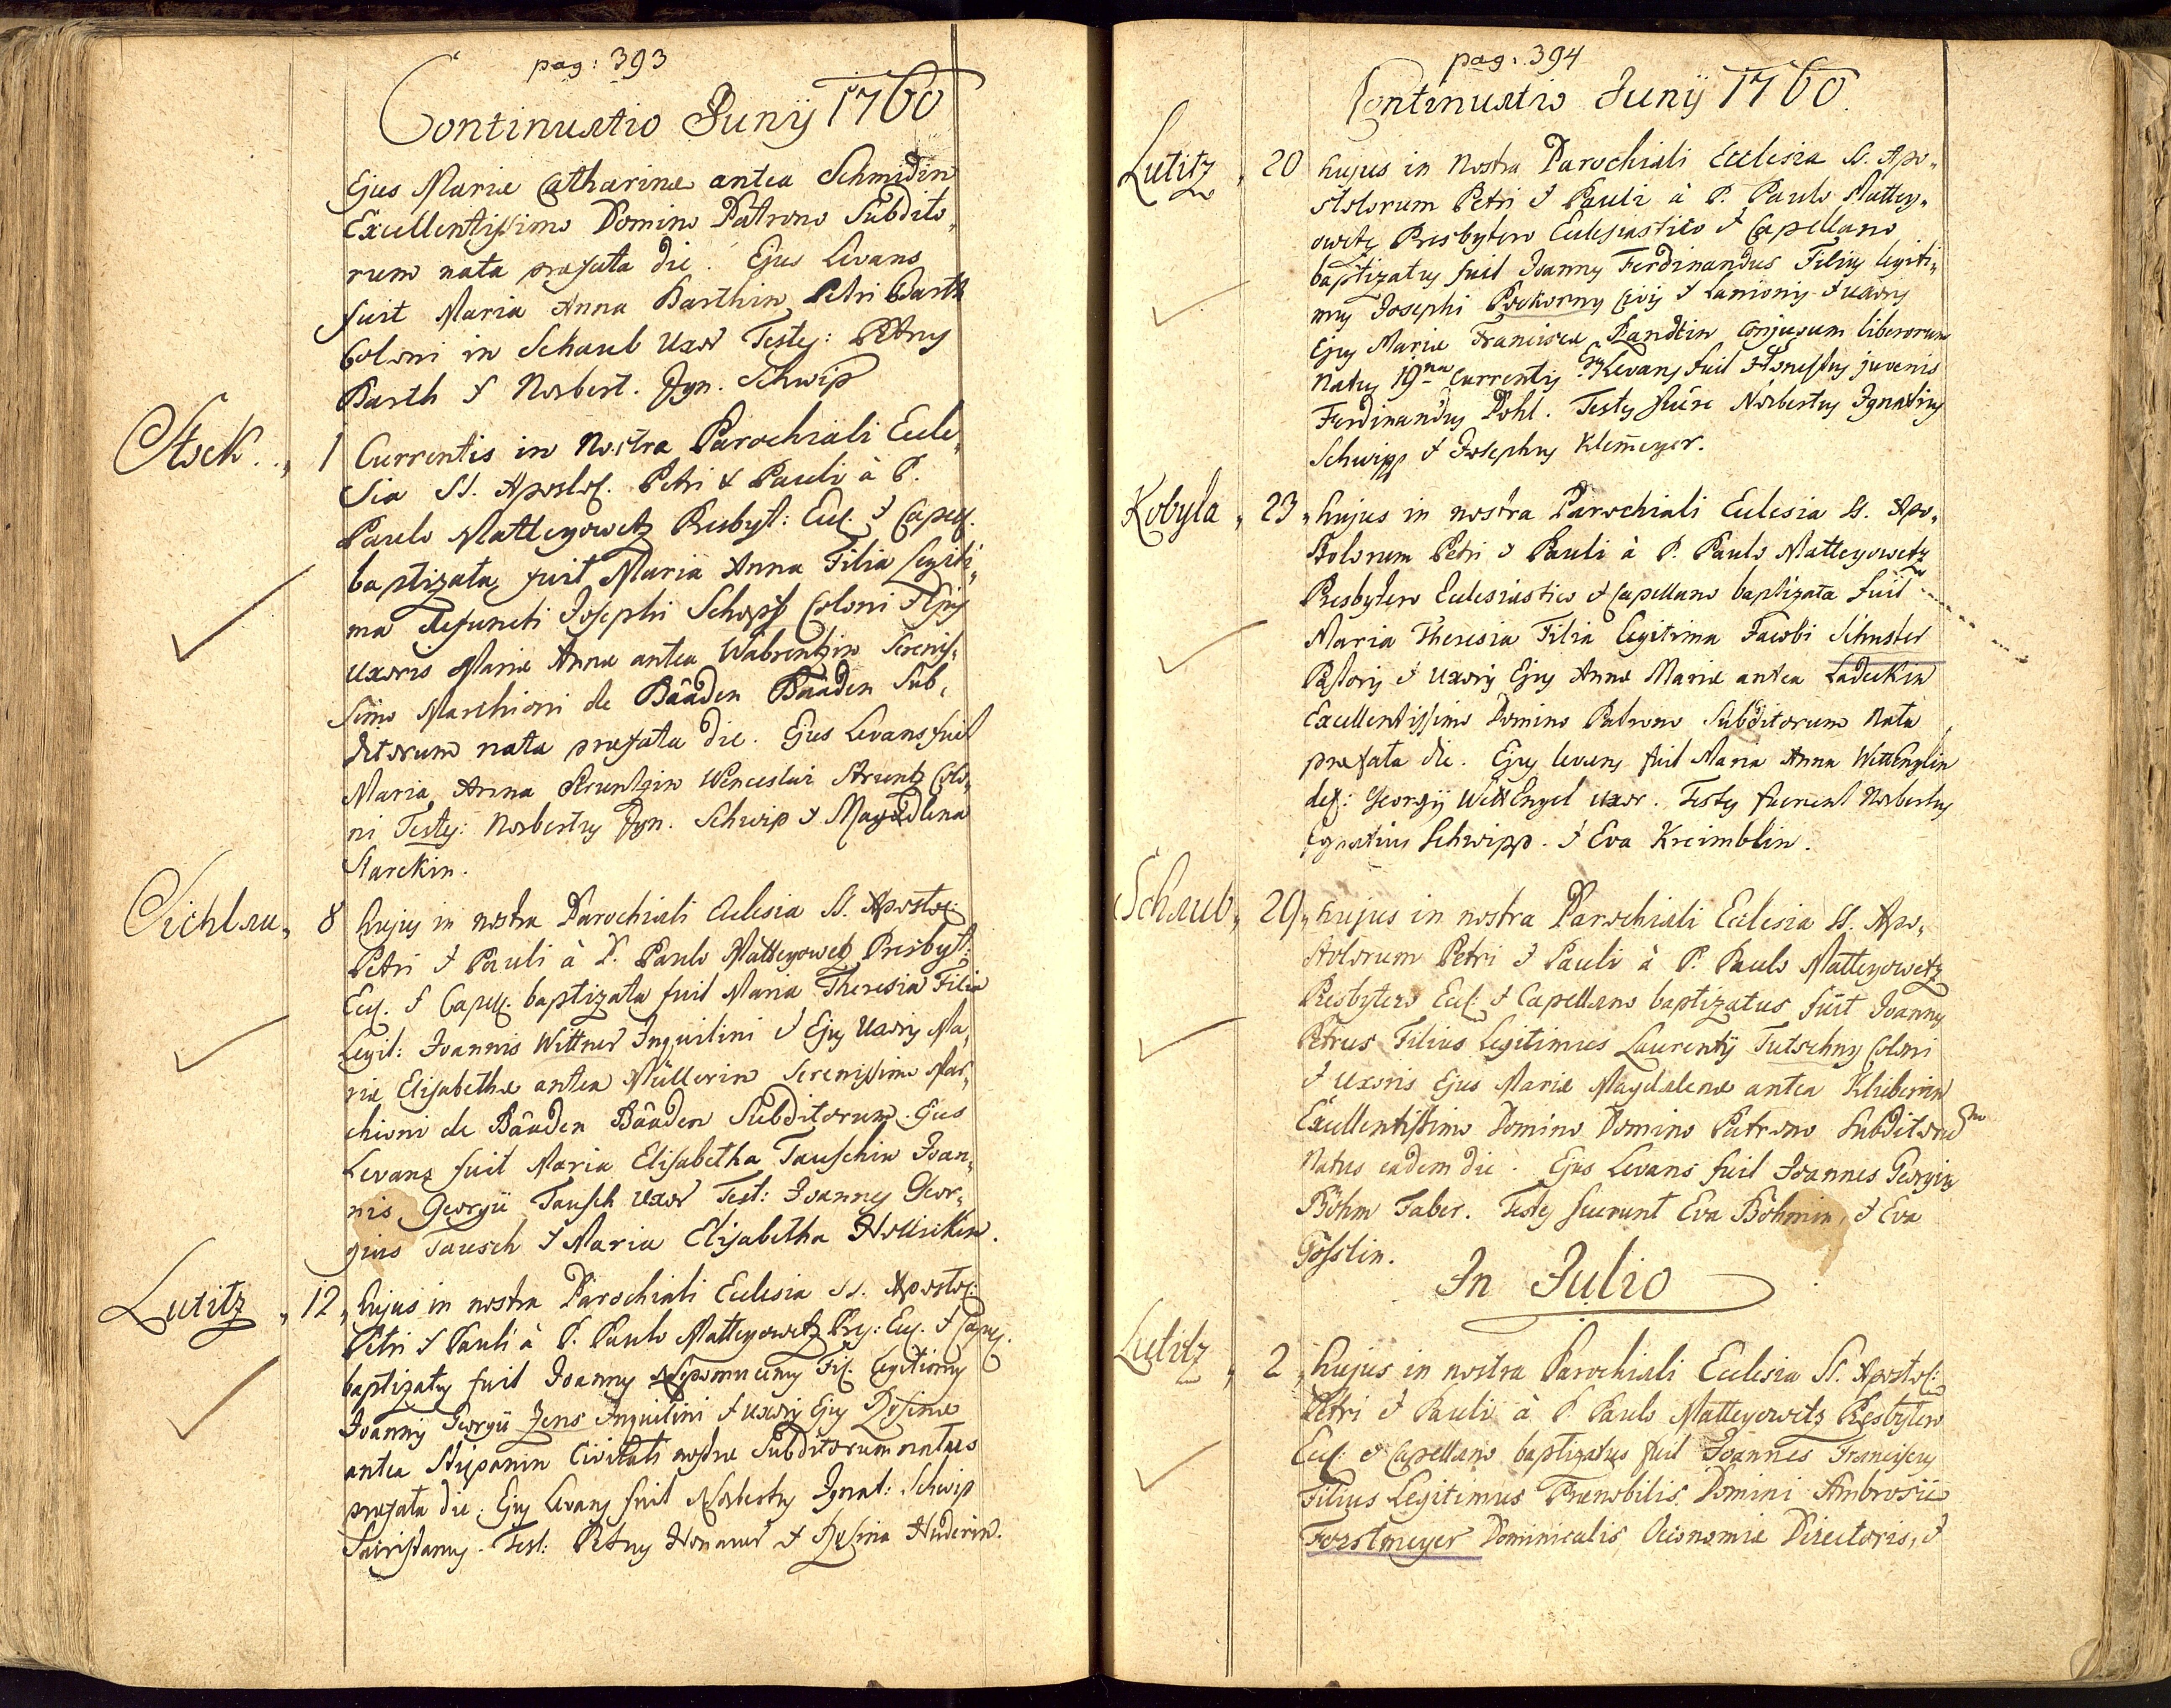 pag: 393
Continuatio Junij 1760
Ejus Mariæ Catharinæ antea Schmidin
Excellentissimo Domino Patrono Subdito,
rum nata præfata die. Ejus Levans
fuit Maria Anna Barthin Petri Barth
Coloni in Schaub Uxor Testes: Petrus
Barth & Norbert. Ign. Schwip
Stock „ 1 Currentis in Nostra Parochiali Eccle,
sia SS. Apostol. Petri & Pauli à P.
Paulo Matteyowetz Presbyt: Eccl. & Capell.
baptizata fuit Maria Anna Filia Legiti,
ma defuncti Josephi Schopf Coloni & Ejus
uxoris Mariæ Annæ antea Wabrentzin Sereniss,
simo Marchioni de Baaden Baaden Sub,
ditorum nata præfata die. Ejus Levans fuit
Maria Anna Struntzin Wenceslai Struntz Colo,
ni Testes: Norbertus Ign. Schwip & Magdalena
Starckin.
Sichlau „ 8 hujus in nostra Parochiali Ecclesia SS. Apostol:
Petri & Pauli à P. Paulo Matteyowetz Presbyt:
Eccl. & Capell. baptizata fuit Maria Theresia Filia
Legit: Joannis Wittner Inquilini & Ejus Uxoris Ma,
riæ Elisabethæ antea Müllerin Serenissimo Mar,
chioni de Baaden Baaden Subditorum. Ejus
Levans fuit Maria Elisabetha Tauschin Joan,
nis Georgii Tausch uxor Test: Joannes Geor,
gius Tausch & Maria Elisabetha
Lutitz „ 12 „ hujus in nostra Parochiali Ecclesia SS. Apostol:
Petri & Pauli à P. Paulo Matteyowetz Prs: Eccl. & Capell.
baptizatus fuit Joannes Nepomucenus Fil. Legitimus
Joannis Georgii Jens Inquilini & uxoris Ejus Rosinæ
antea Stiepanin Civitati nostræ Subditorum natus
præfata die. Ejus Levans fuit Norbertus Ignat: Schwip
Sacristanus. Test: Petrus & Rosina Huderin.
pag. 394
Continuatio Junij 1760.
Lutitz „ 20 hujus in Nostra Parochiali Ecclesia SS. Apo„
stolorum Petri & Pauli à P. Paulo Mattey„
owetz Presbytero Ecclesiastico & Capellano
baptizatus fuit Joannes Ferdinandus Filius legiti„
mus Josephi Pockorny Civis & Lanionis & uxoris
Ejus Mariæ Franciscæ Randtin Conjugum liberorum
Natus 19na Currentis Ejus Levans fuit Honestus juvenis
Ferdinandus Pohl. Testes fuere Norbertus Ignatius
Schwipp & Josephus Klemeyer.
Kobyla „ 23 „ hujus in nostra Parochiali Ecclesia SS. Apo,
stolorum Petri & Pauli à P. Paulo Matteyowetz
Presbytero Ecclesiastico & Capellano baptizata fuit
Maria Theresia Filia Legitima Jacobi Schuster
Pastoris & Uxoris Ejus Annæ Mariæ antea Ladeckin
Excellentissimo Domino Patrono Subditorum Nata
præfata die. Ejus levans fuit Maria Anna WittEnglin
def: Georgij WittEngel uxor. Testes fuerunt Norbertus
Ignatius Schwipp. & Eva Kreimblin.
Schaub „ 29 „ hujus in nostra Parochiali Ecclesia SS. Apo,
stolorum Petri & Pauli à P. Paulo Matteyowetz
Presbytero Eccl: & Capellano baptizatus fuit Joannes
Petrus Filius Legitimus Laurentij Tutschny Coloni
& Uxoris Ejus Mariæ Magdalenæ antea Khieberin
Excellentissimo Domino Domino Patrono Subditorum
Natus eadem die. Ejus Levans fuit Joannes Georgius
Böhm Faber. Testes fuerunt Eva Böhmin, & Eva
Gösslin.
In Julio
Lutitz „ 2 „ hujus in nostra Parochiali Ecclesia SS. Apostol:
Petri & Pauli à P. Paulo Matteyowetz Presbytero
Eccl: & Capellano baptizatus fuit Joannes Franciscus
Filius Legitimus Prænobilis Domini Ambrosii
Forstmeyer Dominicalis Oeconomiæ Directoris, &